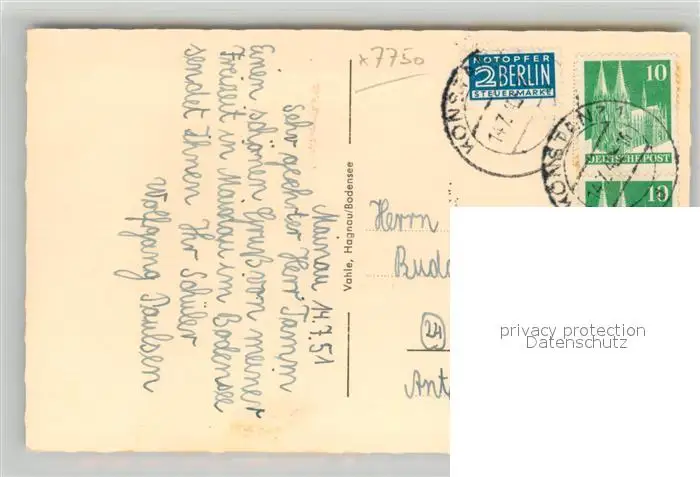 Mainau 14.7.51
Sehr geehrter Herr Tamm
Einen schönen Gruß von meiner
Freizeit in Mainau im Bodensee
sendet Ihnen Ihr Schüler
Wolfgang Paulsen
Vahle, Hagnau/Bodensee
x7750
NOTOPFER
2 BERLIN
STEUERMARKE
KONSTANZ
10
DEUTSCHE POST
10
KONSTANZ
Herrn
24
privacy protection
Datenschutz